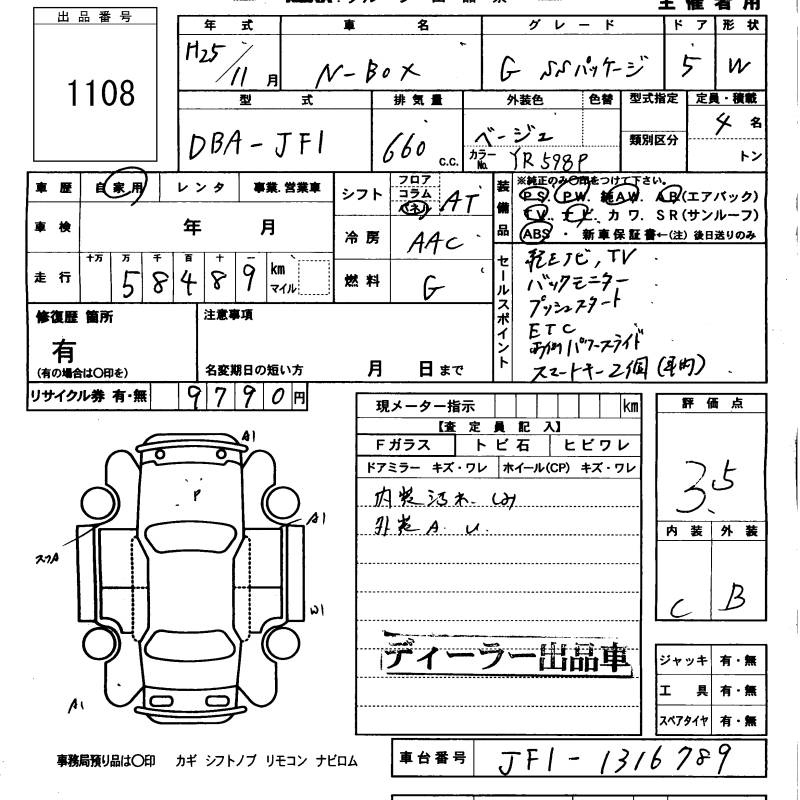 主催者用
出品番号
1108
年式 車名 グレード ドア 形状
H25/11月 N-BOX G SSパッケージ 5 W
型式 排気量 外装色 色替 型式指定 定員・積載
DBA-JF1 660 c.c. ベージュ 類別区分 4名
カラーNo. YR598P トン
車歴 自家用 レンタ 事業.営業車
シフト フロア コラム パネル AT
装備品 ※純正のみ○印をつけて下さい。
PS. PW. 純AW. AB(エアバック)
TV. ナビ. カワ. SR(サンルーフ)
ABS ・ 新車保証書←(注) 後日送りのみ
車検 年 月
冷房 AAC
走行 十万 万 千 百 十 一
58489 km マイル
燃料 G
セールスポイント
純正ナビ,TV
バックモニター
プッシュスタート
ETC
両側パワースライド
スマートキー2個(車内)
修復歴 箇所 注意事項
有
(有の場合は○印を) 名変期日の短い方 月 日まで
リサイクル券 有・無 9790円
現メーター指示 km
【査定員記入】
Fガラス トビ石 ヒビワレ
ドアミラー キズ・ワレ ホイール(CP) キズ・ワレ
内装汚れ.しみ
外装A.U.
ディーラー出品車
評価点
3.5
内装 外装
C B
ジャッキ 有・無
工具 有・無
スペアタイヤ 有・無
A1
P
A1
スフA
W1
A1
事務局預り品は○印 カギ シフトノブ リモコン ナビロム
車台番号 JF1-1316789